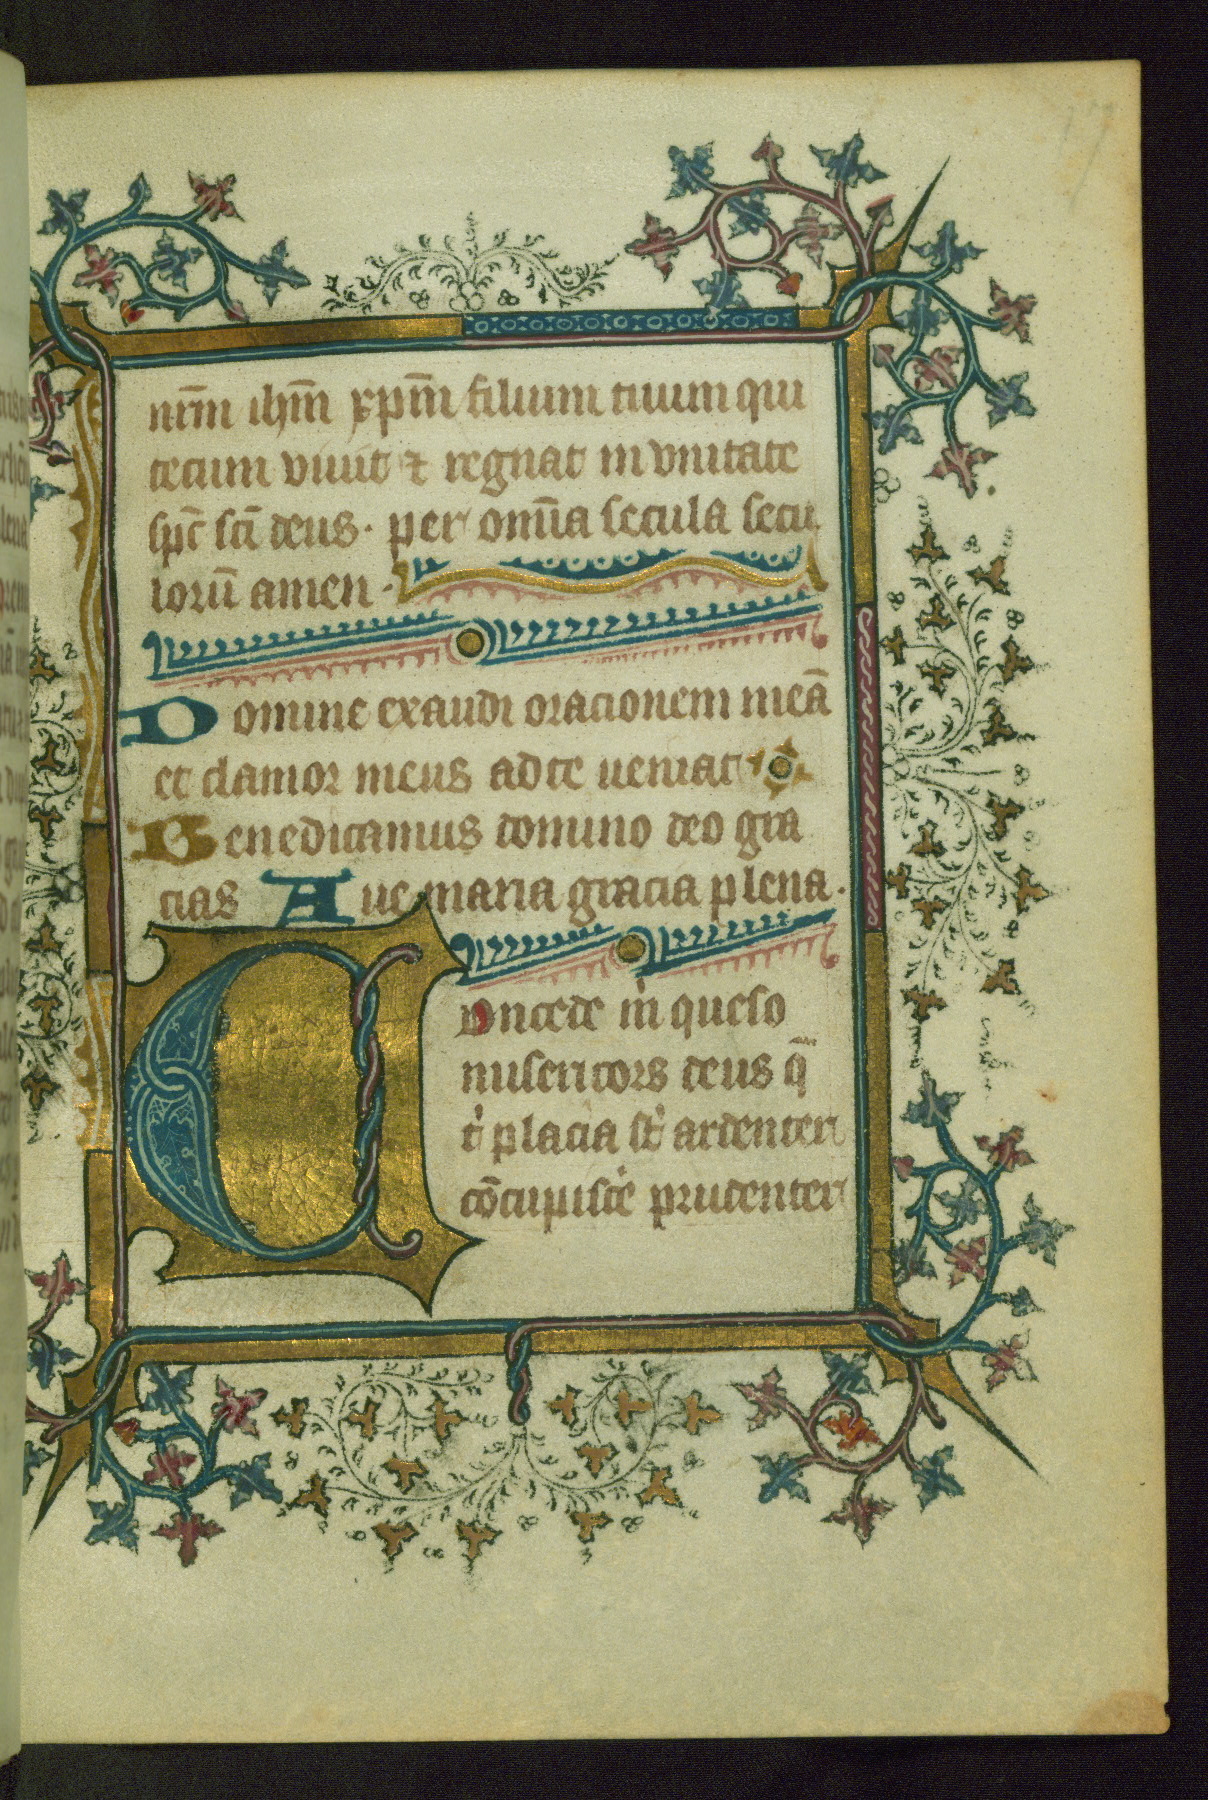 17
nr̄m ih̄m xp̄m filium tuum qui
tecum viuit ⁊ regnat in vnitate
sp̄c sc̄i deus· per om̄ia secula secu
lorū amen·
Domine exaudi oracionem meā
et clamor meus ad te ueniat
Benedicamus domino deo gra
cias Aue maria gracia plena·
Concede m̍ queso
misericors deus q̄
t̍ placita st̍ ardenter
cōcupisce̍ prudenter